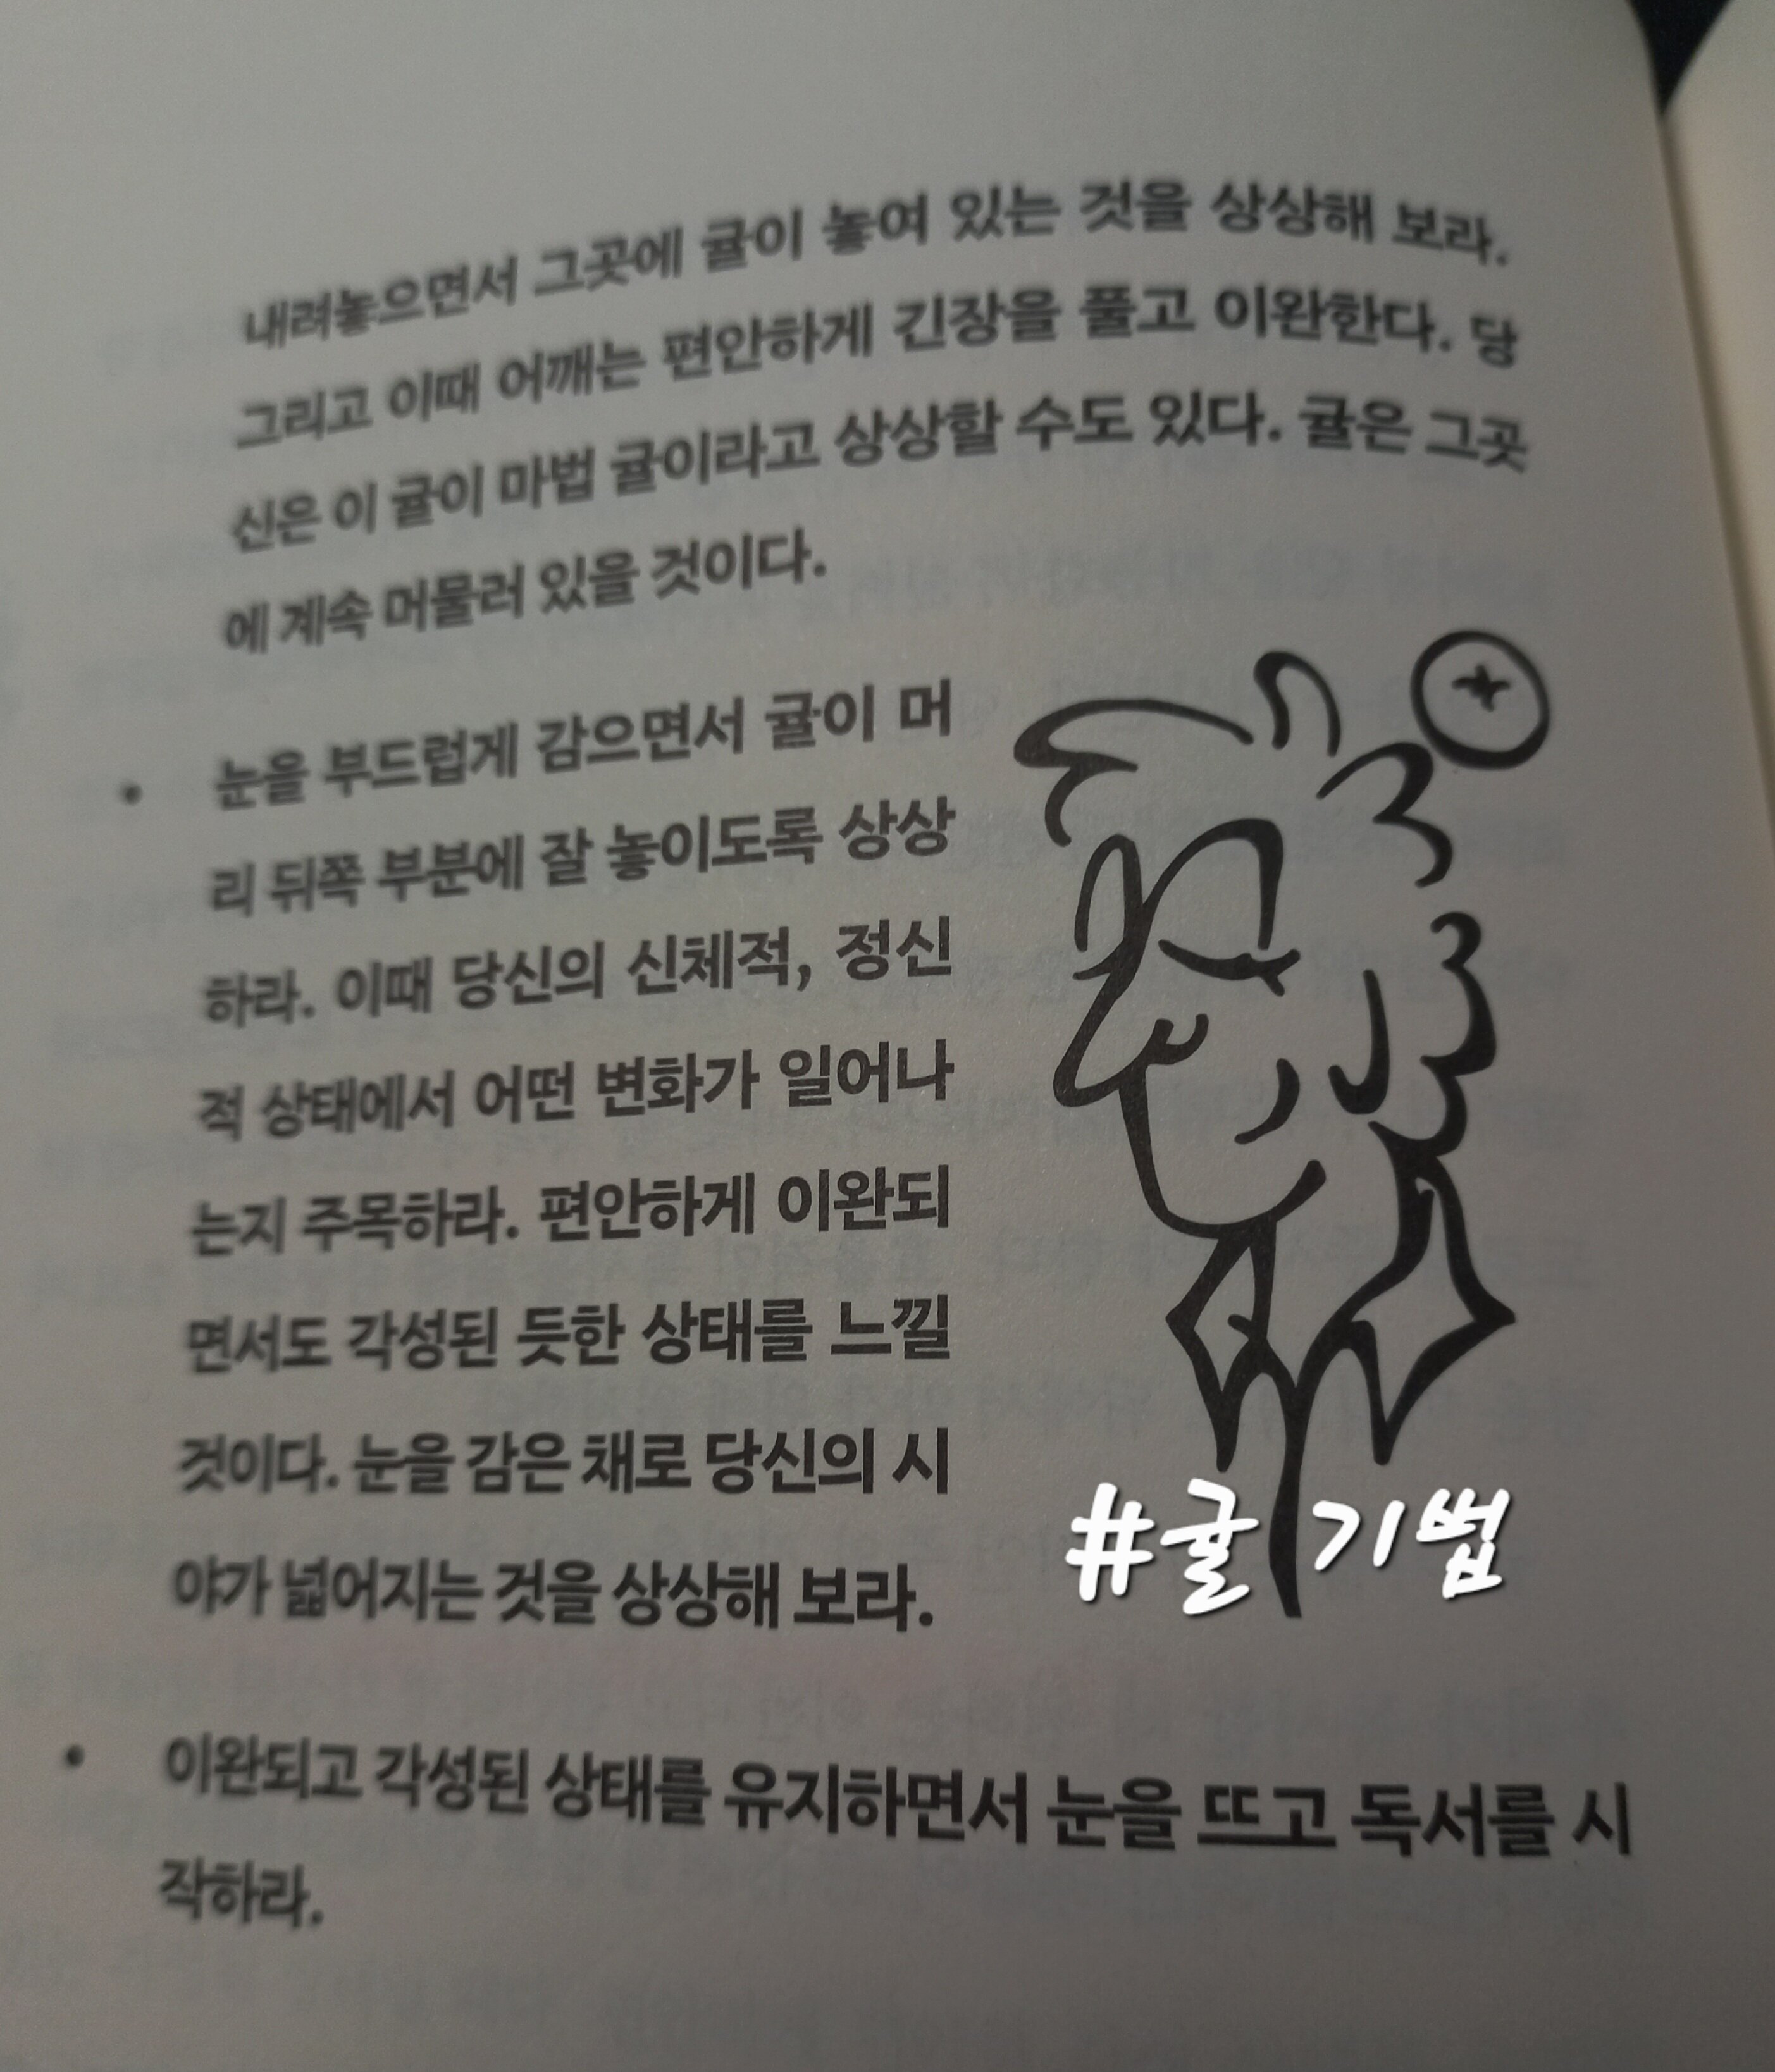 내려놓으면서 그곳에 귤이 놓여 있는 것을 상상해 보라.
그리고 이때 어깨는 편안하게 긴장을 풀고 이완한다. 당
신은 이 귤이 마법 귤이라고 상상할 수도 있다. 귤은 그곳
에 계속 머물러 있을 것이다.
• 눈을 부드럽게 감으면서 귤이 머
리 뒤쪽 부분에 잘 놓이도록 상상
하라. 이때 당신의 신체적, 정신
적 상태에서 어떤 변화가 일어나
는지 주목하라. 편안하게 이완되
면서도 각성된 듯한 상태를 느낄
것이다. 눈을 감은 채로 당신의 시
야가 넓어지는 것을 상상해 보라.
#귤 기법
• 이완되고 각성된 상태를 유지하면서 눈을 뜨고 독서를 시
작하라.